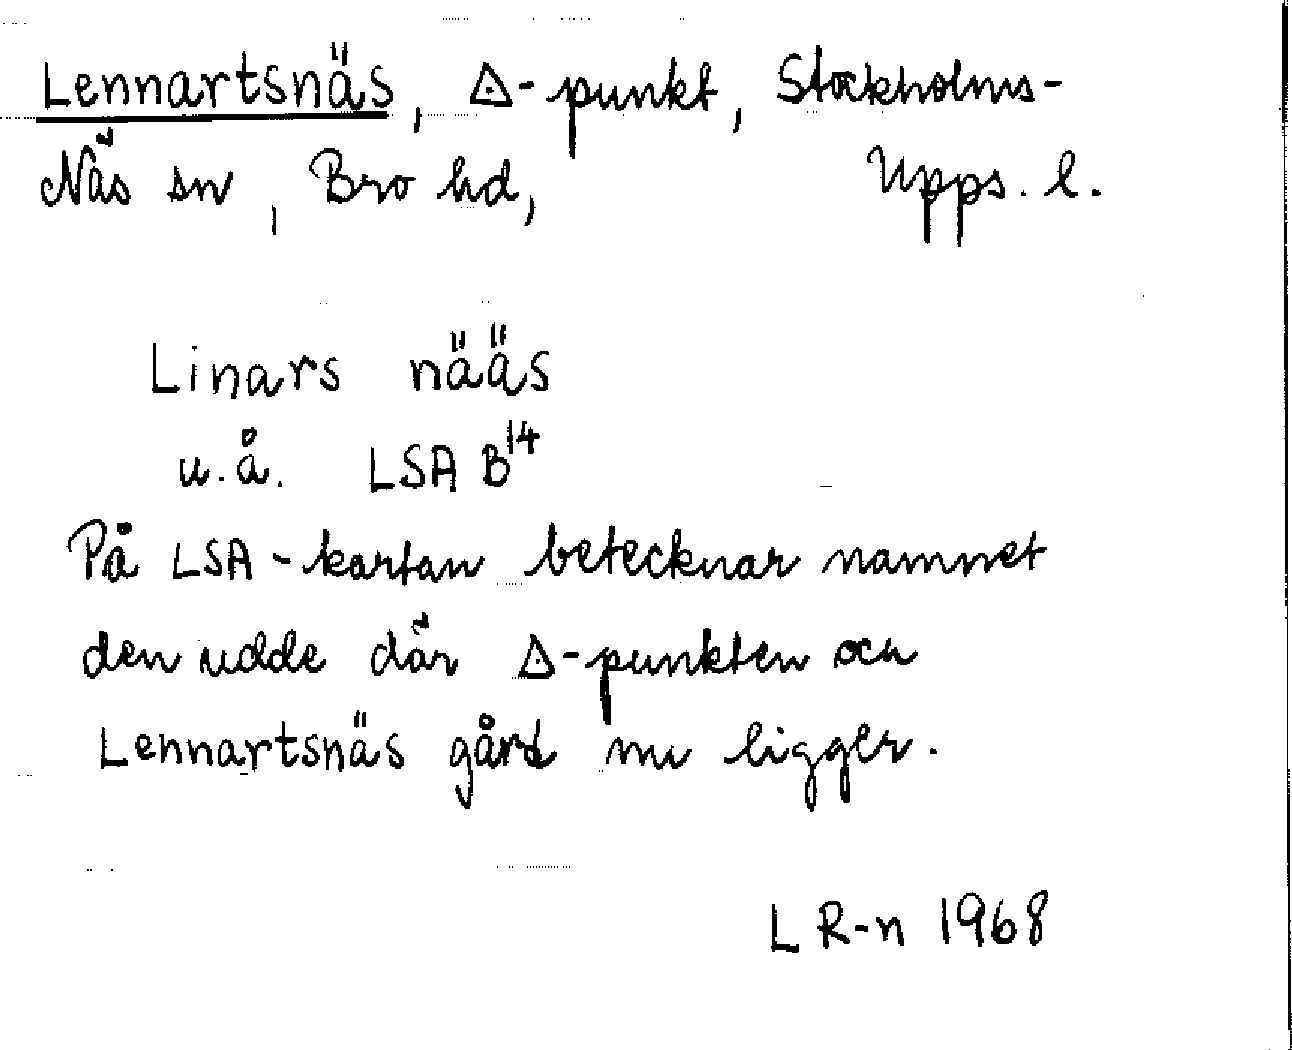 Lennartsnäs, △-punkt, Stockholms-
Näs sn, Bro hd, Upps. l.
Linars nääs
u.å. LSA B¹⁴
På LSA-kartan betecknar namnet
den udde där △-punkten och
Lennartsnäs gård nu ligger.
L R-n 1968